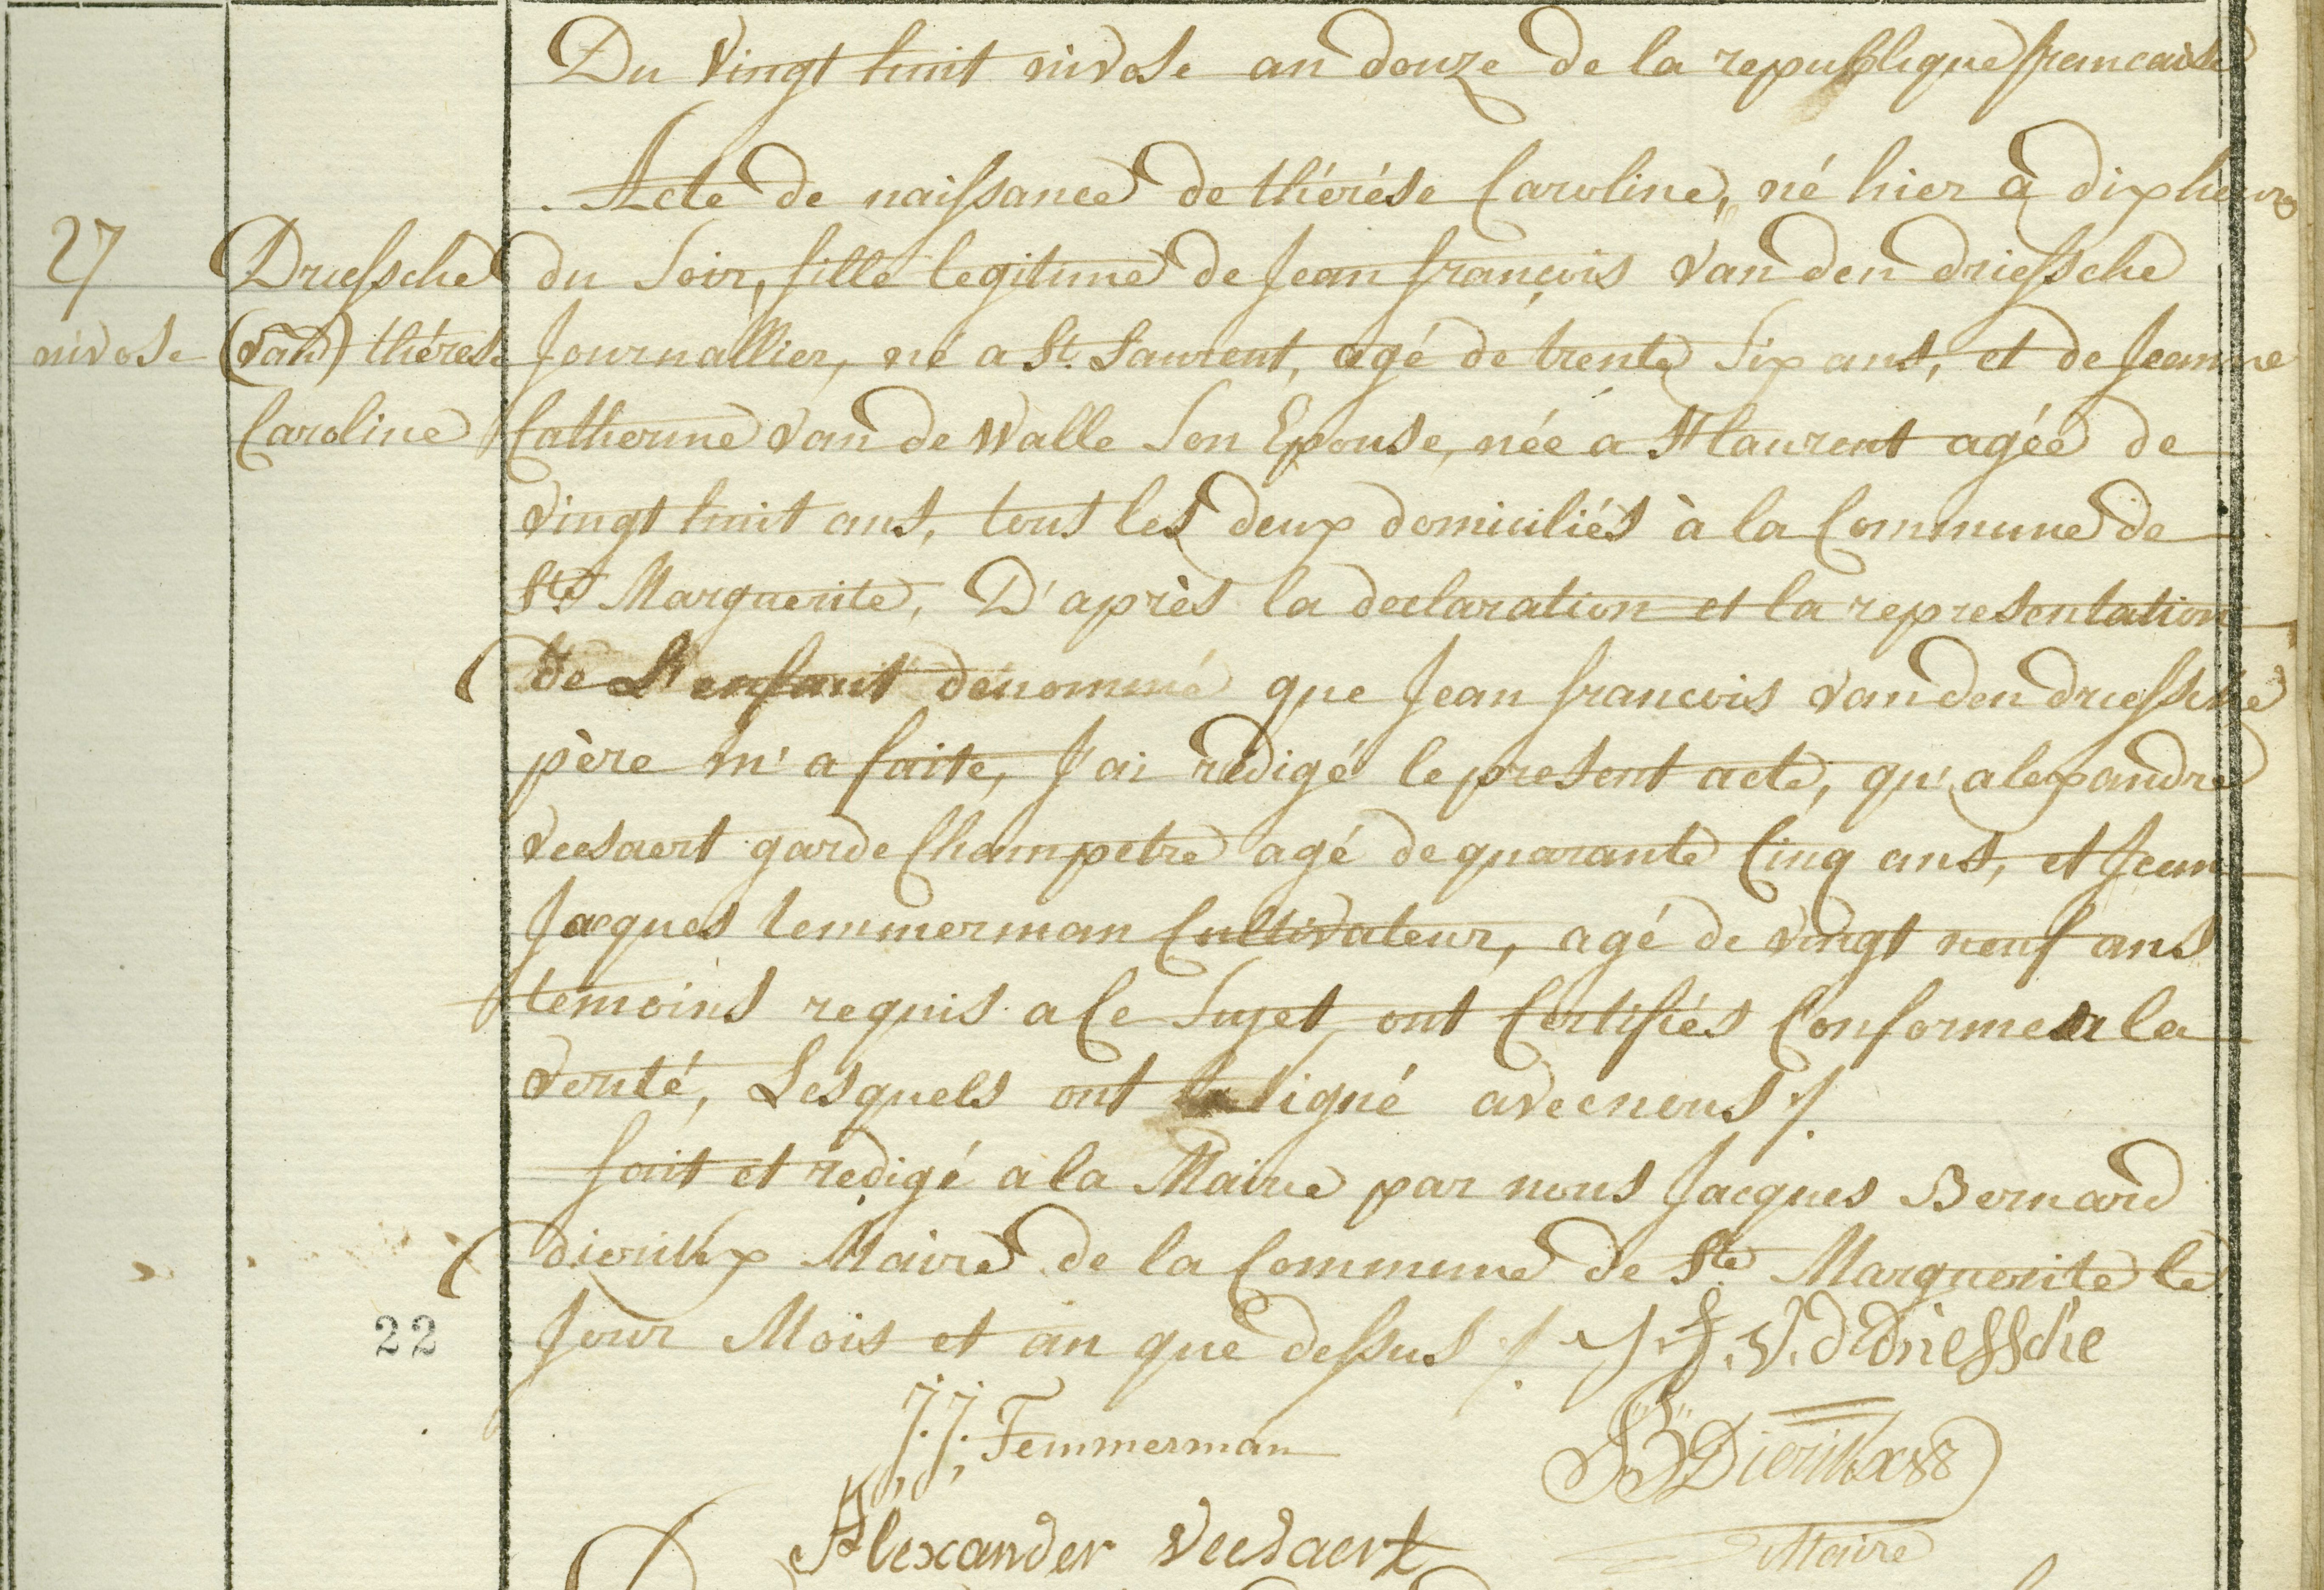 Du vingt huit nivose an douze de la republique francaise
Acte de naissance de thérése Caroline, né hier à dix heures
27
nivose
Driessche
(van) thérese
Caroline
du Soir, fille legitime de Jean françois van den driessche
Journallier, né a St. Laurent, agé de trente Six ans, et de Jeanne
Catherine van de Walle Son Epouse, née a St laurent agée de
vingt huit ans, tous les deux domiciliés à la Commune de
Ste Marguerite, D'après la declaration et la representation
de L'enfant dénommé que Jean francois van den driessche
père m'a faite, J'ai rédigé le present acte, qu'alexandre
veesaert garde Champetre agé de quarante Cinq ans, et Jean
Jacques temmerman Cultivateur, agé de vingt neuf ans
temoins requis a Ce Sujet, ont Certifiés Conforme a la
verité, Lesquels ont signé avec nous /.
fait et redigé a la Mairie par nous Jacques Bernard
dierickx Maire de la Commune de Ste Marguerite le
22
Jour Mois et an que dessus /. J. F. V. d driessche
j. j. Temmerman
JB Dierickx
Alexander veesaert
Maire